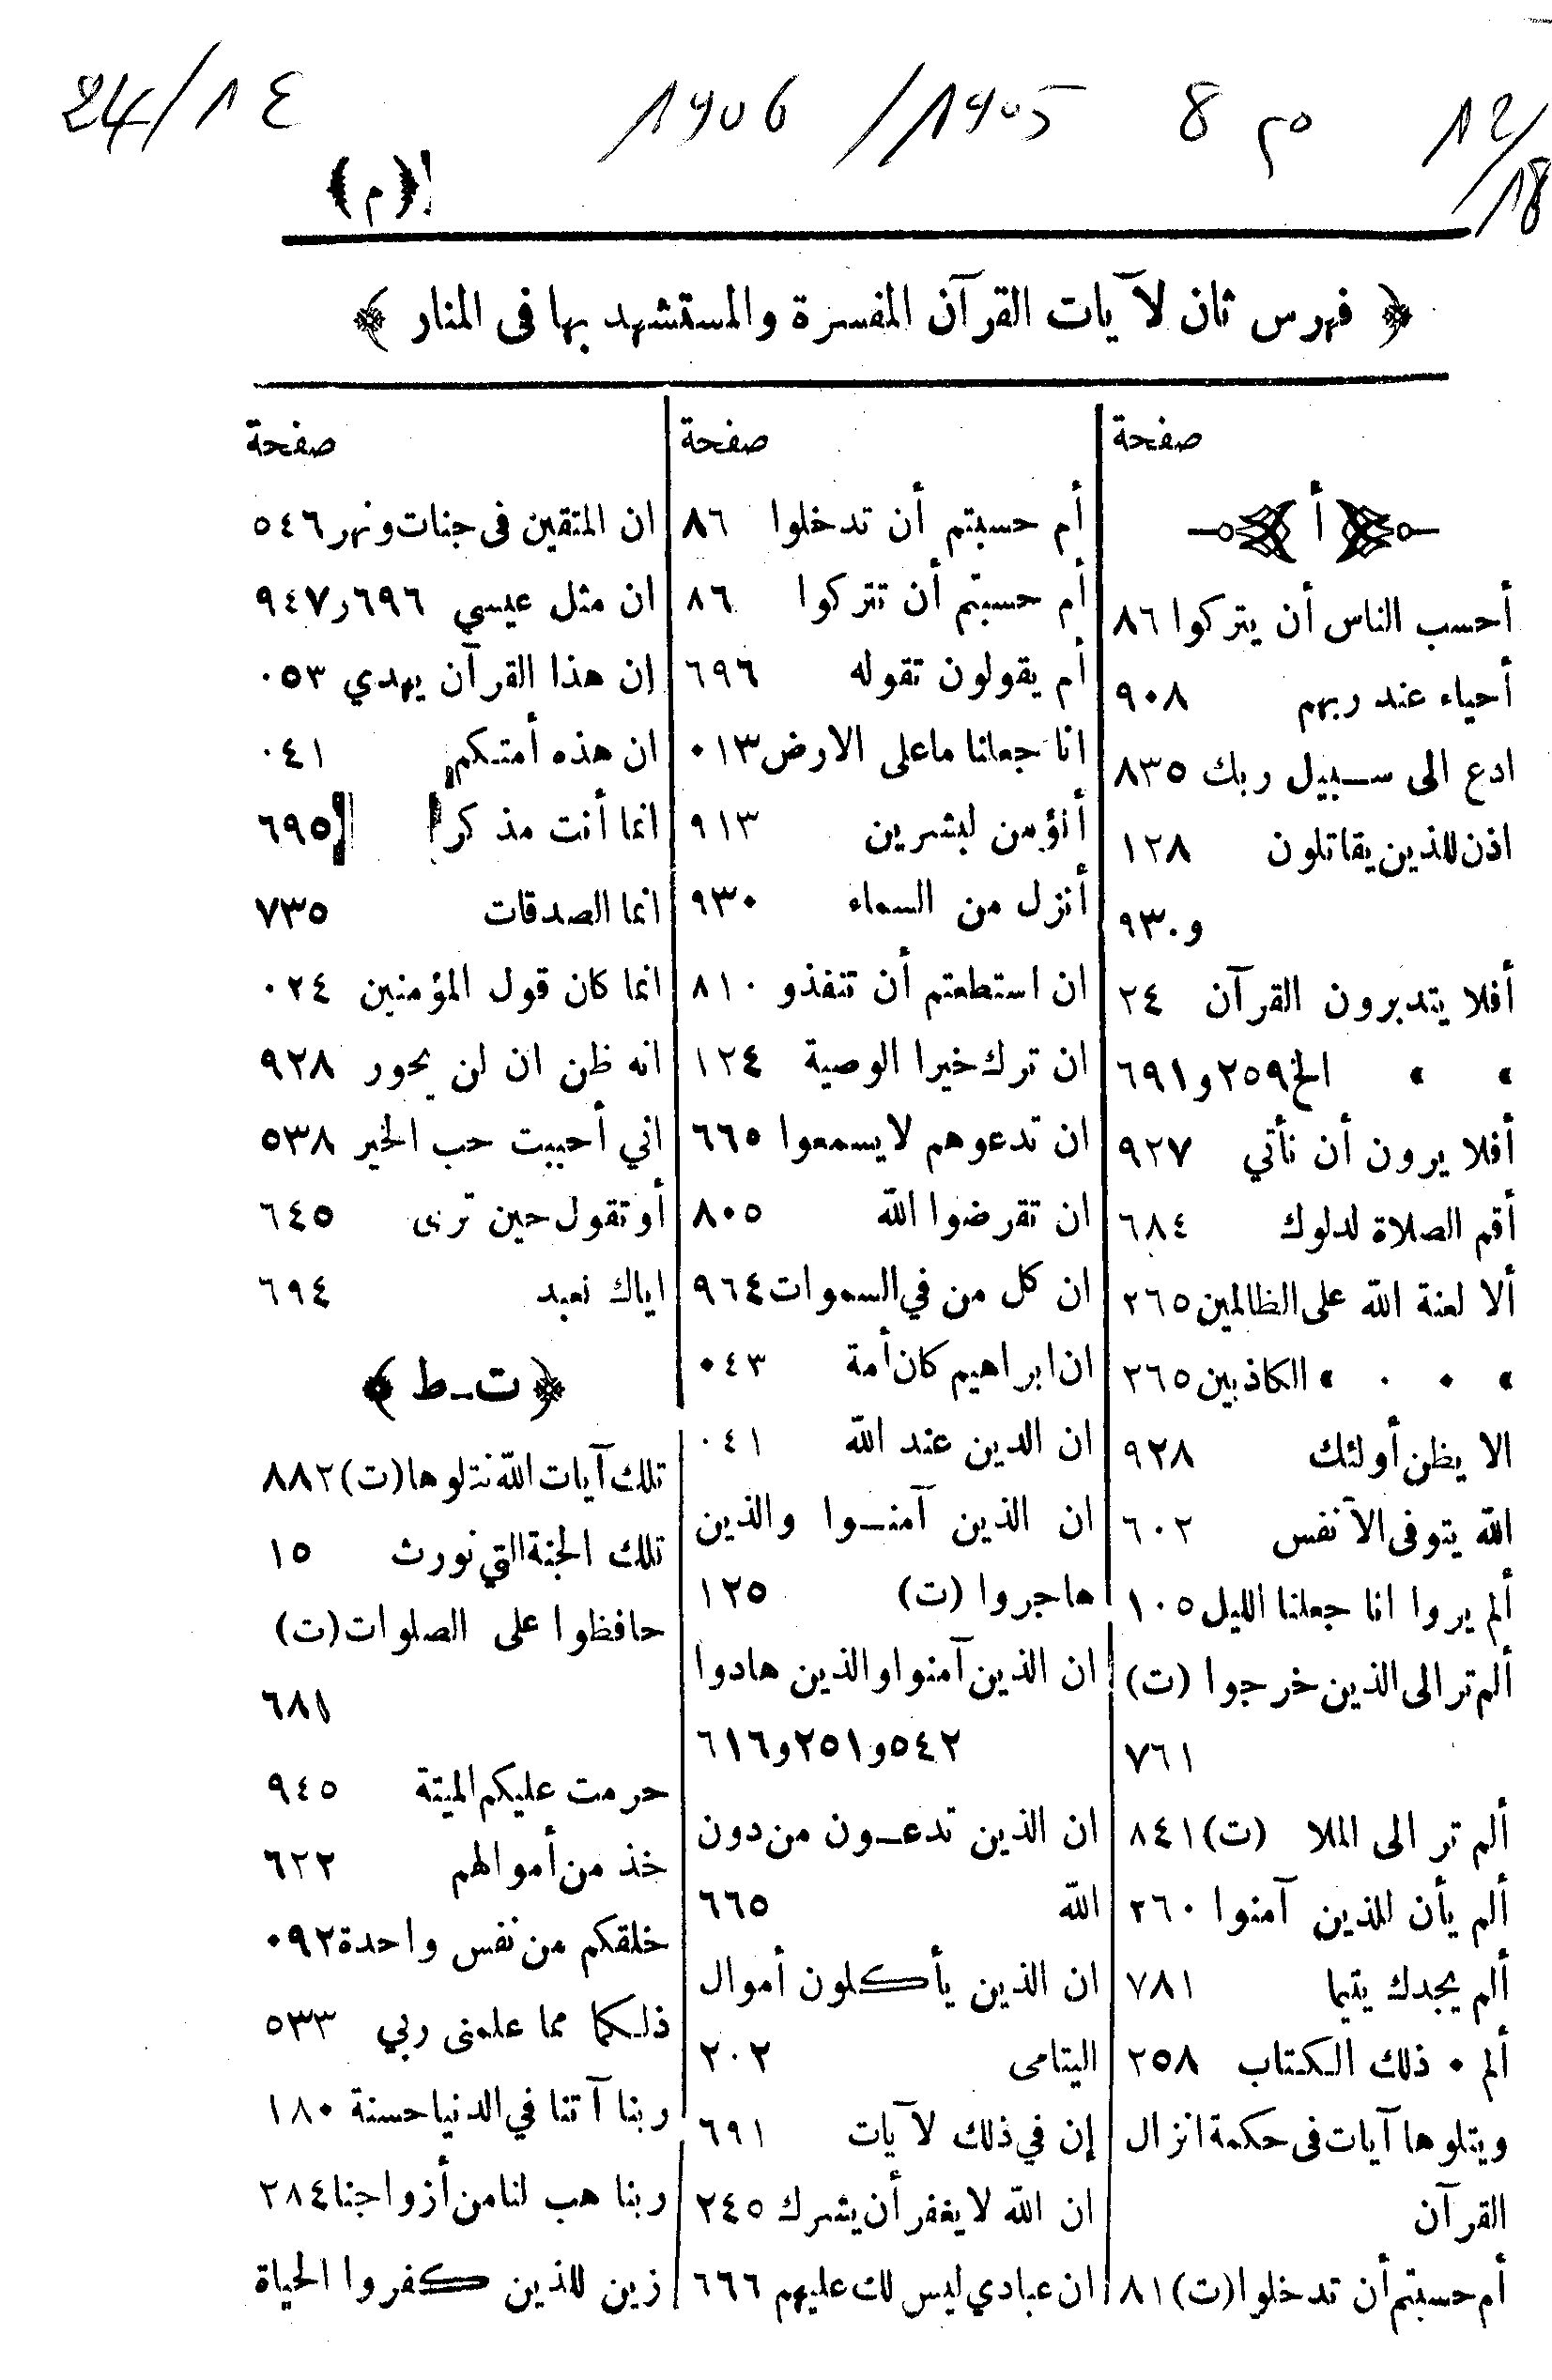 24/١٤ 1906 /1905 م 8 12/18
(م)
﴿ فهرس ثان لآيات القرآن المفسرة والمستشهد بها فى المنار ﴾
صفحة
أ
أحسب الناس أن يتركوا ٨٦
أحياء عند ربهم ٩٠٨
ادع الى سبيل ربك ٨٣٥
اذن للذين يقاتلون ١٢٨
و٩٣٠
أفلا يتدبرون القرآن ٢٤
» » الخ ٢٥٩ و٦٩١
أفلا يرون أن نأتي ٩٢٧
أقم الصلاة لدلوك ٦٨٤
ألا لعنة الله على الظالمين ٢٦٥
» ٠ ٠ » الكاذبين ٢٦٥
الا يظن أولئك ٩٢٨
الله يتوفى الآنفس ٦٠٢
ألم يروا انا جعلنا الليل ١٠٥
ألم تر الى الذين خرجوا (ت)
٧٦١
ألم تر الى الملا (ت) ٨٤١
ألم يأن للذين آمنوا ٢٦٠
ألم يجدك يتيما ٧٨١
ألم ٠ ذلك الكتاب ٢٥٨
ويتلوها آيات فى حكمة انزال
القرآن
أم حسبتم أن تدخلوا (ت) ٨١
صفحة
أم حسبتم أن تدخلوا ٨٦
أم حسبتم أن تتركوا ٨٦
أم يقولون تقوله ٦٩٦
انا جعلنا ماعلى الارض ٠١٣
أنؤمن لبشرين ٩١٣
أنزل من السماء ٩٣٠
ان استطعتم أن تنفذو ٨١٠
ان ترك خيرا الوصية ١٢٤
ان تدعوهم لا يسمعوا ٦٦٥
ان تقرضوا الله ٨٠٥
ان كل من في السموات ٩٦٤
ان ابراهيم كان أمة ٠٤٣
ان الدين عند الله ٠٤١
ان الذين آمنوا والذين
هاجروا (ت) ١٢٥
ان الذين آمنوا والذين هادوا
٥٤٢ و٢٥١ و٦١٦
ان الذين تدعون من دون
الله ٦٦٥
ان الذين يأكلون أموال
اليتامى ٢٠٢
إن في ذلك لآيات ٦٩١
ان الله لا يغفر أن يشرك ٢٤٥
ان عبادي ليس لك عليهم ٦٦٦
صفحة
ان المتقين فى جنات ونهر ٥٤٦
ان مثل عيسي ٦٩٦ر٩٤٧
إن هذا القرآن يهدي ٠٥٣
ان هذه أمتكم ٠٤١
انما أنت مذكر ٦٩٥
انما الصدقات ٧٣٥
انما كان قول المؤمنين ٠٢٤
انه ظن ان لن يحور ٩٢٨
اني أحببت حب الخير ٥٣٨
أو تقول حين ترى ٦٤٥
اياك نعبد ٦٩٤
﴿ ت ـ ط ﴾
تلك آيات الله نتلوها (ت) ٨٨٢
تلك الجنة التي نورث ١٥
حافظوا على الصلوات (ت)
٦٨١
حرمت عليكم الميتة ٩٤٥
خذ من أموالهم ٦٢٢
خلقكم من نفس واحدة ٠٩٢
ذلكما مما علمنى ربي ٥٣٣
ربنا آتنا في الدنيا حسنة ١٨٠
ربنا هب لنا من أزواجنا ٢٨٤
زين للذين كفروا الحياة